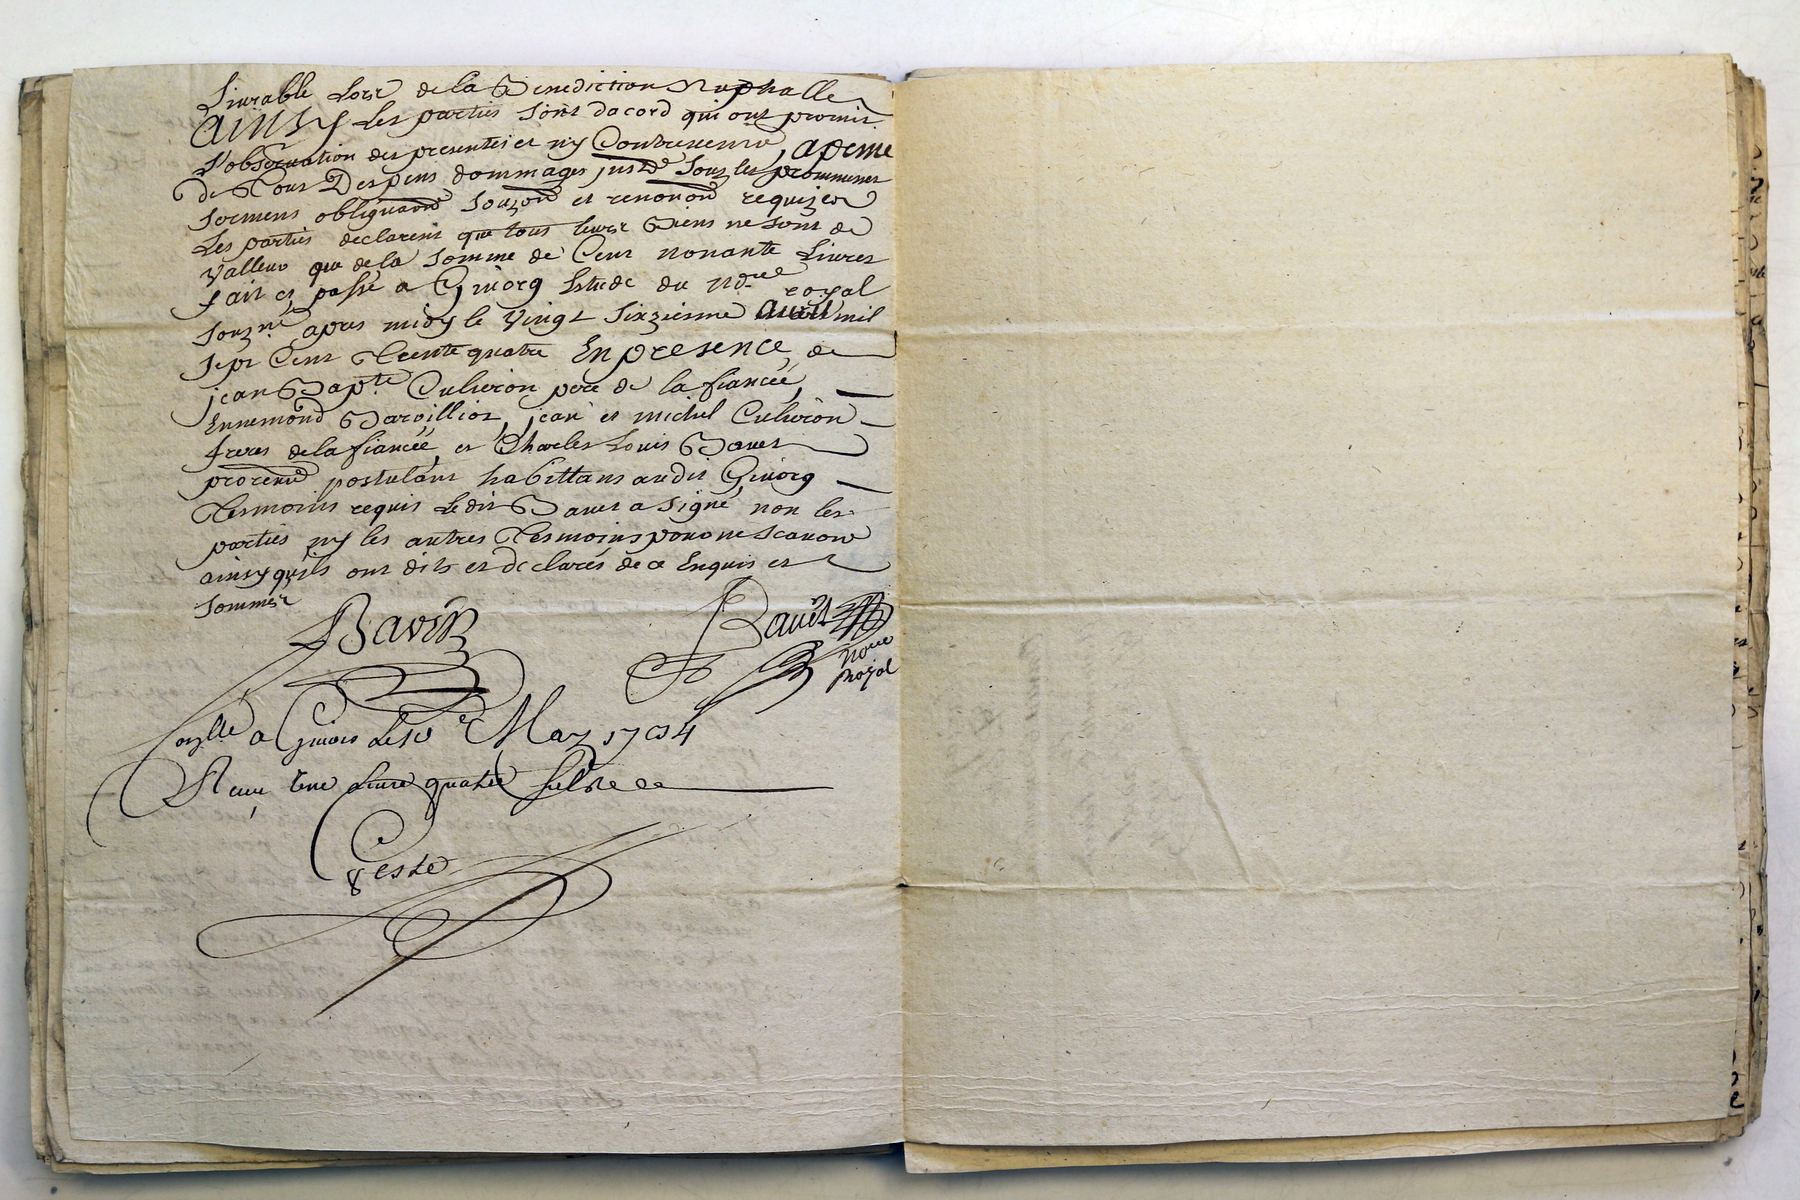 Livrable Lors de la Benediction Nuptialle
Ainsy les parties sont dacord qui ont promis
l'observation des presentes et ny Contrevenir, a peine
de Tous Despens dommages sous les
sermens obligaõns et renonõn requizes
Les parties declarent que tous leurs Biens ne sont de
Valleur que de la somme de Cent nonante Livres
fait et passé a Givorg Estude du Noꝰre royal
souzné apres midy le vingt sixziesme avril mil
sept Cent Trente quatre En presence de
jean Bapte Culieron pere de la fiancée,
Ennemond Baroillior, jean et michel Culieron
freres de la fiancée, et Charles Louis Bavet
postulant habittans audit Givorg
Tesmoins requis Ledit Bavet a signé non les
parties ny les autres Tesmoins pour ne scavoir
ainsy quils ont dits et declarés de ce Enquis et
sommés
Bavet
Bavet
Noꝰre
Royal
a Givors Le 10e May 1734
Receu Une Livre quatre sols
Ceste